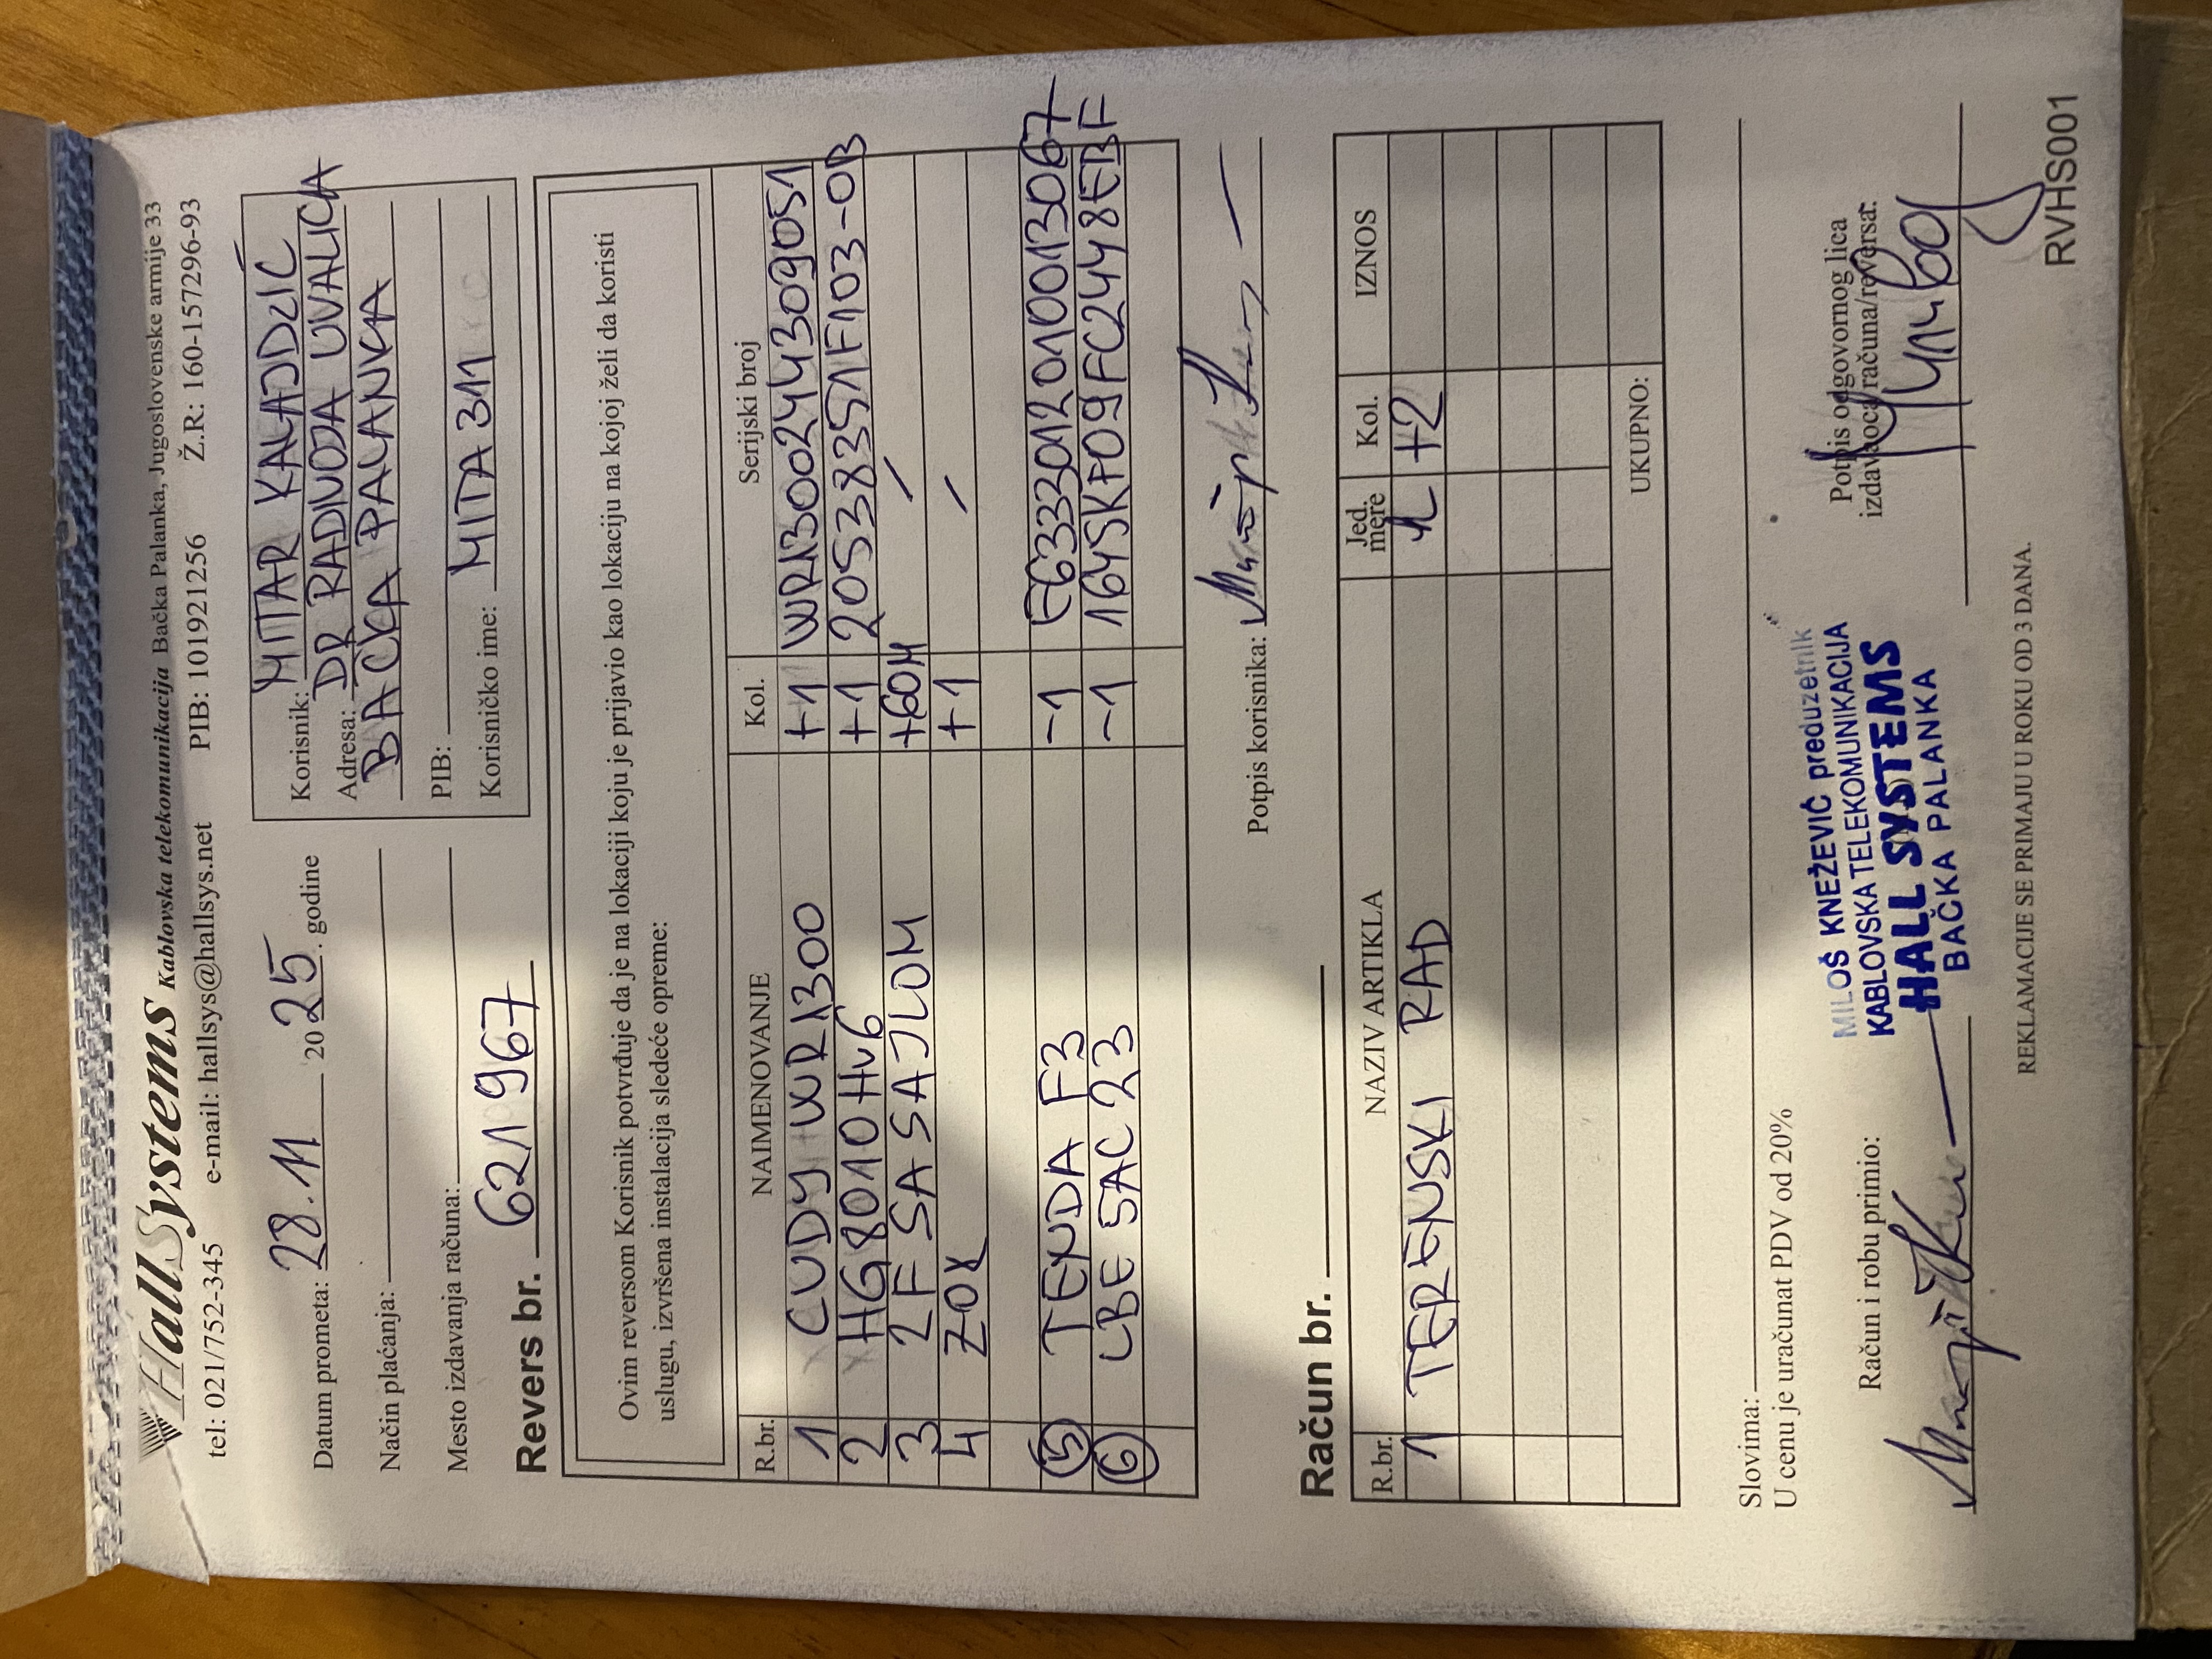 HallSystems Kablovska telekomunikacija Bačka Palanka, Jugoslovenske armije 33
tel: 021/752-345 e-mail: hallsys@hallsys.net PIB: 101921256 Ž.R: 160-157296-93
Datum prometa: 28.11 2025. godine
Način plaćanja:
Mesto izdavanja računa:
Revers br. 621967
Korisnik: MITAR KALAJDŽIĆ
Adresa: DR RADIVOJA UVALIĆA
BAČKA PALANKA
PIB:
Korisničko ime: MITA311
Ovim reversom Korisnik potvrđuje da je na lokaciji koju je prijavio kao lokaciju na kojoj želi da koristi
uslugu, izvršena instalacija sledeće opreme:
R.br. NAIMENOVANJE Kol. Serijski broj
1 CUDY WR1300 +1 WR1300244309051
2 HG8010Hv6 +1 20538351F103-0B
3 2F SA SAJLOM +60M /
4 ZOK +1 /
5 TENDA F3 -1 E6333012010013067
6 LBE 5AC 23 -1 1645KF09FC2448EBF
Potpis korisnika:
Račun br.
R.br. NAZIV ARTIKLA Jed. mere Kol. IZNOS
1 TERENSKI RAD +2
UKUPNO:
Slovima:
U cenu je uračunat PDV od 20%
Račun i robu primio:
MILOŠ KNEŽEVIĆ preduzetnik
KABLOVSKA TELEKOMUNIKACIJA
HALL SYSTEMS
BAČKA PALANKA
Potpis odgovornog lica
izdavaoca računa/reversa:
REKLAMACIJE SE PRIMAJU U ROKU OD 3 DANA.
RVHS001